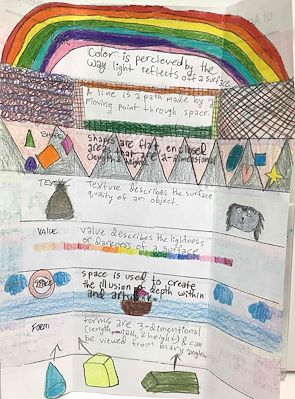 Color is percieved by the
way light reflects off a surface
A line is a path made by a
moving point through space.
Shape
Shapes are flat, enclosed
areas that are 2-dimensional
(length & height)
Texture describes the surface
quality of an object.
Value
Value describes the lightness
or darkness of a surface
Space
Space is used to create
the illusion of depth within
Form
forms are 3-dimentional
(length, width, & height) & can
be viewed from many angles